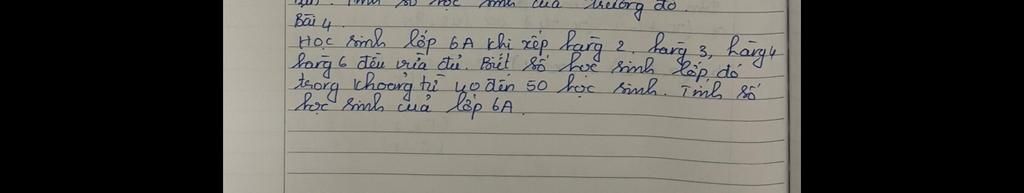 học sinh của trường đó.
Bài 4.
Học sinh lớp 6A khi xếp hàng 2, hàng 3, hàng 4
hàng 6 đều vừa đủ. Biết số học sinh lớp đó
trong khoảng từ 40 đến 50 học sinh. Tính số
học sinh của lớp 6A.